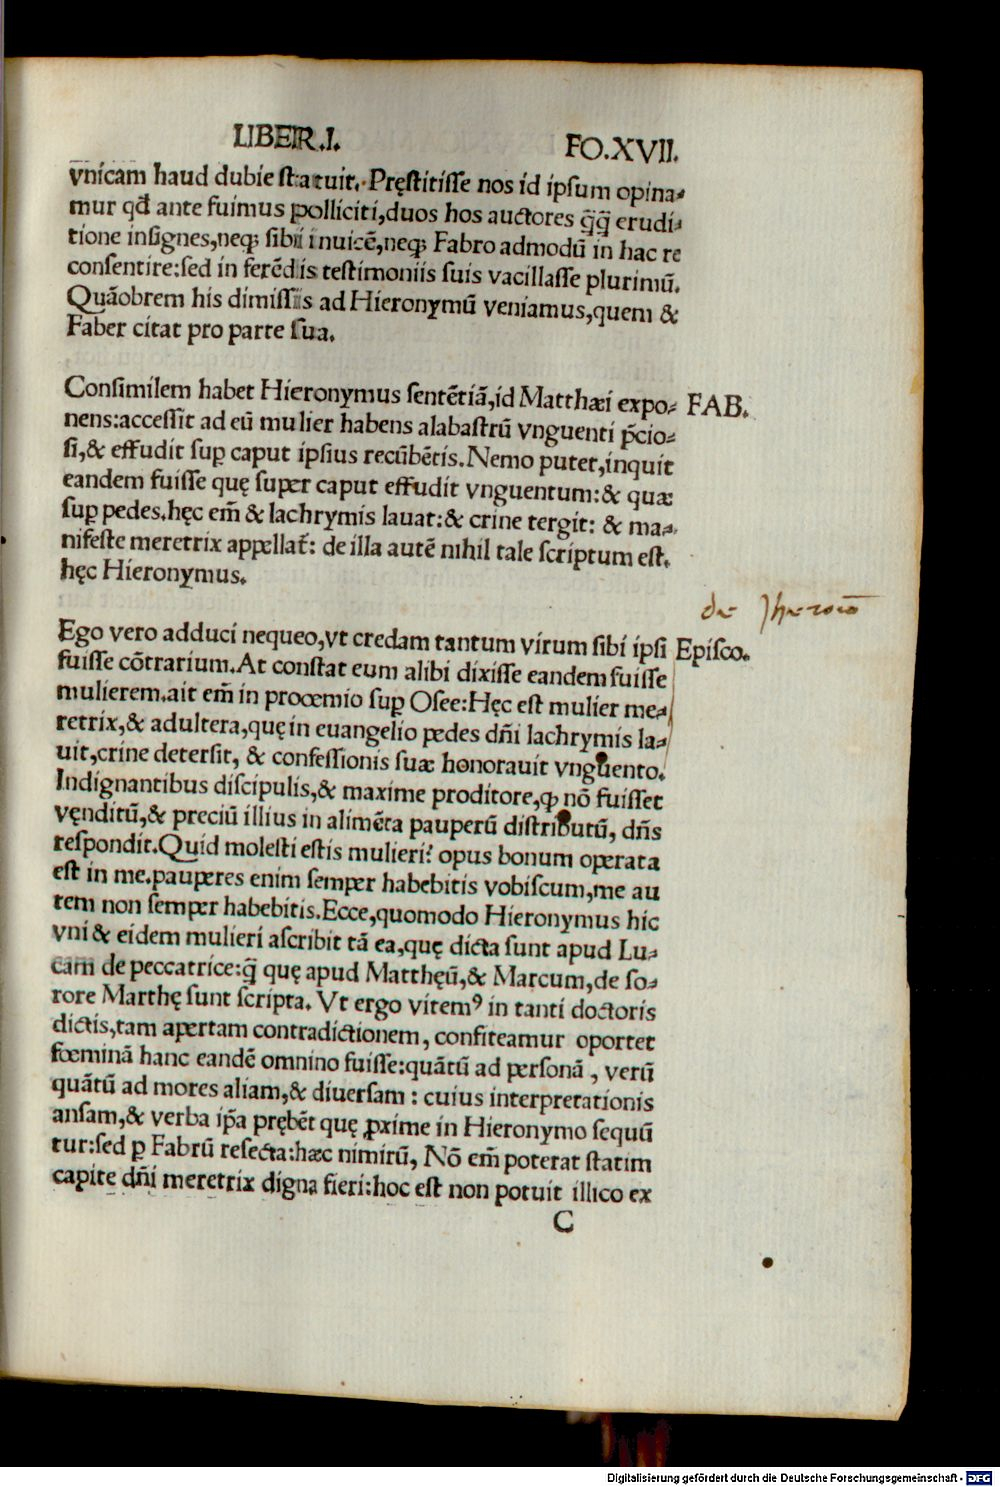 LIBER.I. FO.XVII.
vnicam haud dubie statuit. Pręstitisse nos id ipsum opina-
mur qđ ante fuimus polliciti,duos hos auctores q̃q̃ erudi-
tione insignes,neqꝫ sibi inuicē,neqꝫ Fabro admodū in hac re
consentire:sed in ferēdis testimoniis suis vacillasse plurimū.
Quāobrem his dimissis ad Hieronymū veniamus,quem &
Faber citat pro parte sua.
Consimilem habet Hieronymus sentētiā,id Matthæi expo- FAB.
nens:accessit ad eū mulier habens alabastrū vnguenti p̄cio-
si,& effudit suꝑ caput ipsius recūbētis.Nemo putet,inquit
eandem fuisse quę super caput effudit vnguentum:& quæ
suꝑ pedes.hęc em̄ & lachrymis lauat:& crine tergit: & ma-
nifeste meretrix appellat᷑: de illa autē nihil tale scriptum est.
hęc Hieronymus.
de Jheronimo
Ego vero adduci nequeo,vt credam tantum virum sibi ipsi Episco.
fuisse cōtrarium.At constat eum alibi dixisse eandem fuisse
mulierem.ait em̄ in proœmio suꝑ Osee:Hęc est mulier me-
retrix,& adultera,quę in euangelio pedes dñi lachrymis la-
uit,crine detersit, & confessionis suæ honorauit vnguento.
Indignantibus discipulis,& maxime proditore,ꝙ nō fuisset
vęnditū,& preciū illius in alimēta pauperū distributū, dñs
respondit.Quid molesti estis mulieri? opus bonum operata
est in me.pauperes enim semper habebitis vobiscum,me au
tem non semper habebitis.Ecce,quomodo Hieronymus hic
vni & eidem mulieri ascribit tā ea,quę dicta sunt apud Lu-
cam de peccatrice:q̃ quę apud Matthęū,& Marcum,de so-
rore Marthę sunt scripta. Vt ergo vitemꝰ in tanti doctoris
dictis,tam apertam contradictionem, confiteamur oportet
fœminā hanc eandē omnino fuisse:quātū ad personā , verū
quātū ad mores aliam,& diuersam : cuius interpretationis
ansam,& verba ip̄a prębēt quę ꝓxime in Hieronymo sequū
tur:sed ꝑ Fabrū resecta:hæc nimirū, Nō em̄ poterat statim
capite dñi meretrix digna fieri:hoc est non potuit illico ex
C
Digitalisierung gefördert durch die Deutsche Forschungsgemeinschaft - DFG